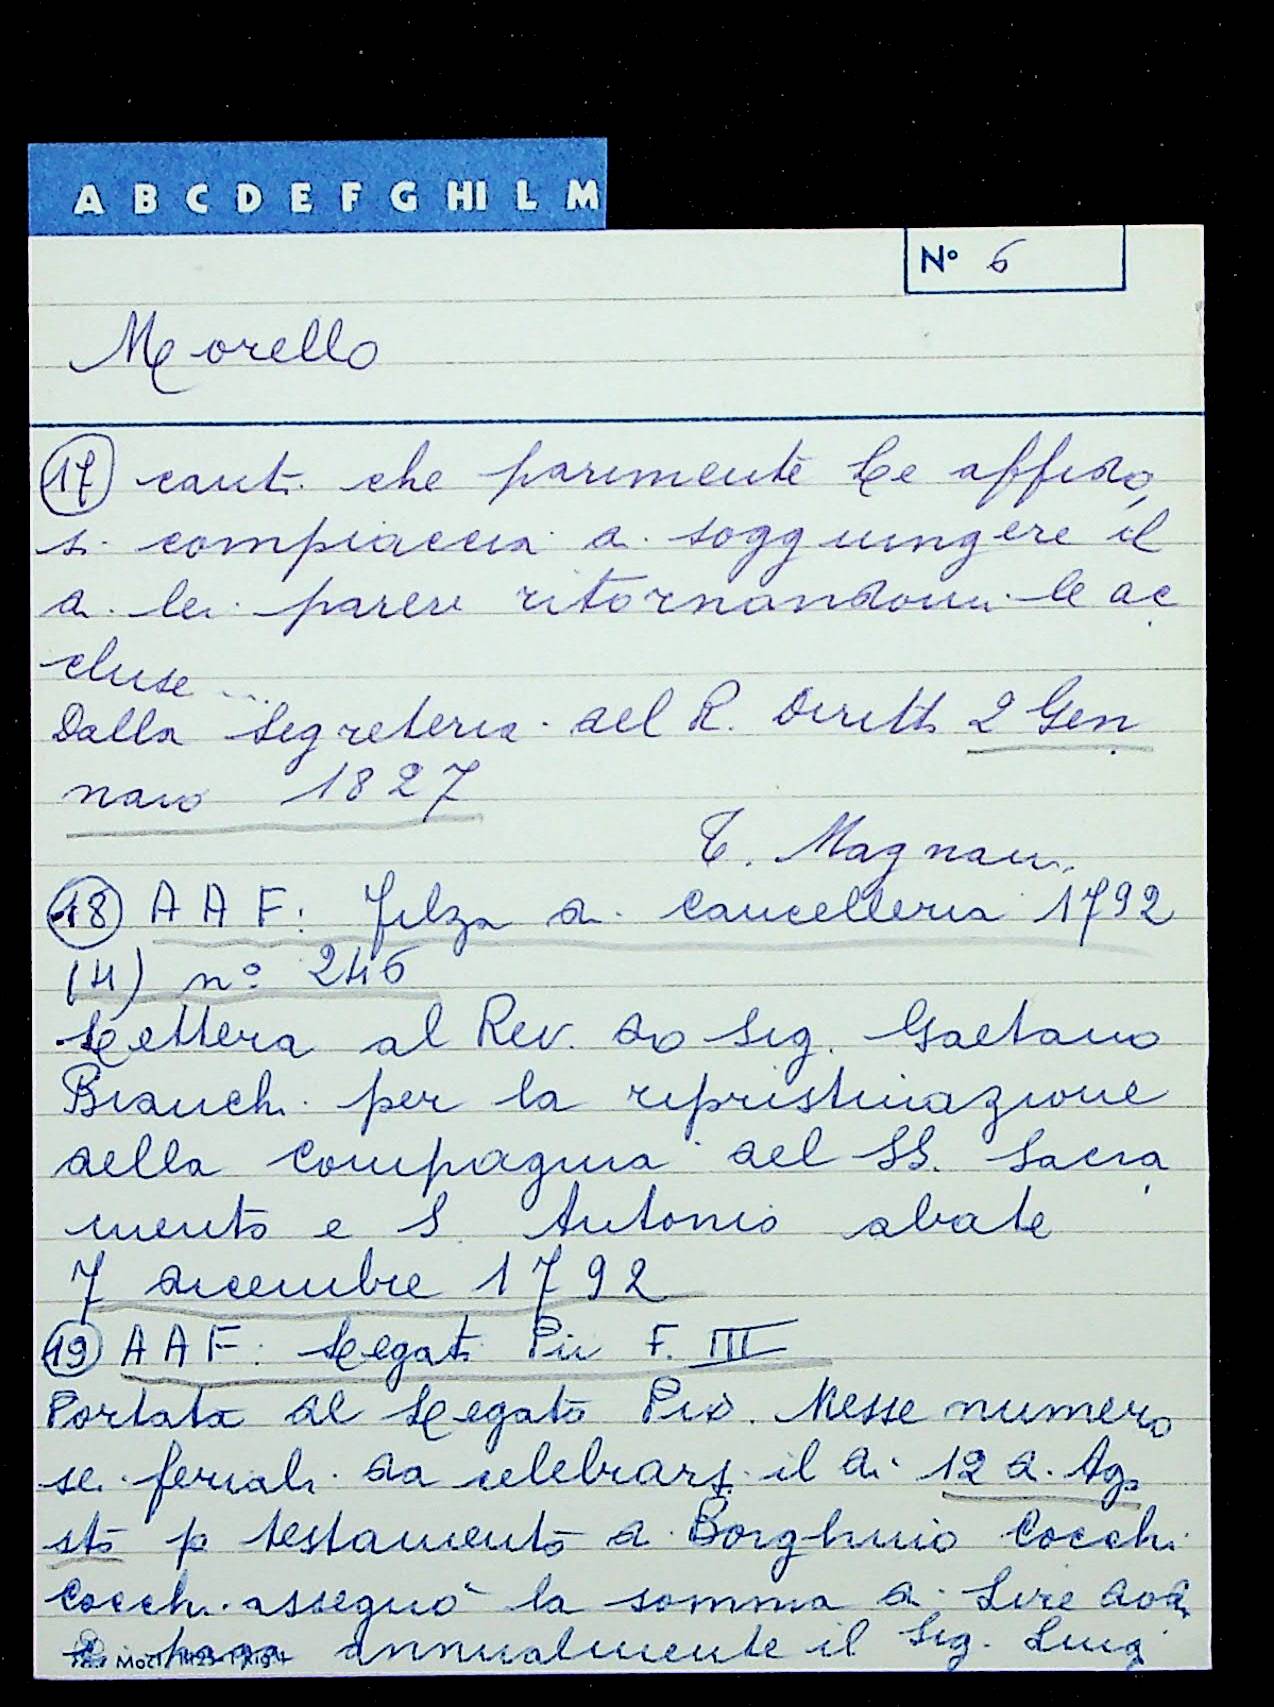 A B C D E F G HI L M
N° 6
Morello
17 canti che parimente Le affido,
si compiaccia di soggiungere il
di lei parere ritornandomi le ac
cluse ...
Dalla Segreteria del R. Diritto 2 Gen
naio 1827
T. Magnani
18 A A F: Filza di Cancelleria 1792
(4) n° 246
Lettera al Rev. do Sig. Gaetano
Bianchi per la ripristinazione
della Compagnia del SS. Sacra
mento e S. Antonio abate
7 dicembre 1792
19 A A F: Legati Pii F. III
Portata di Legato Pio. Messe numero
sei feriali da celebrarsi il dì 12 d. Ago
sto p testamento di Borghino Cocchi
Cocchi assegnò la somma di Lire dodi
ci paga annualmente il Sig. Luig